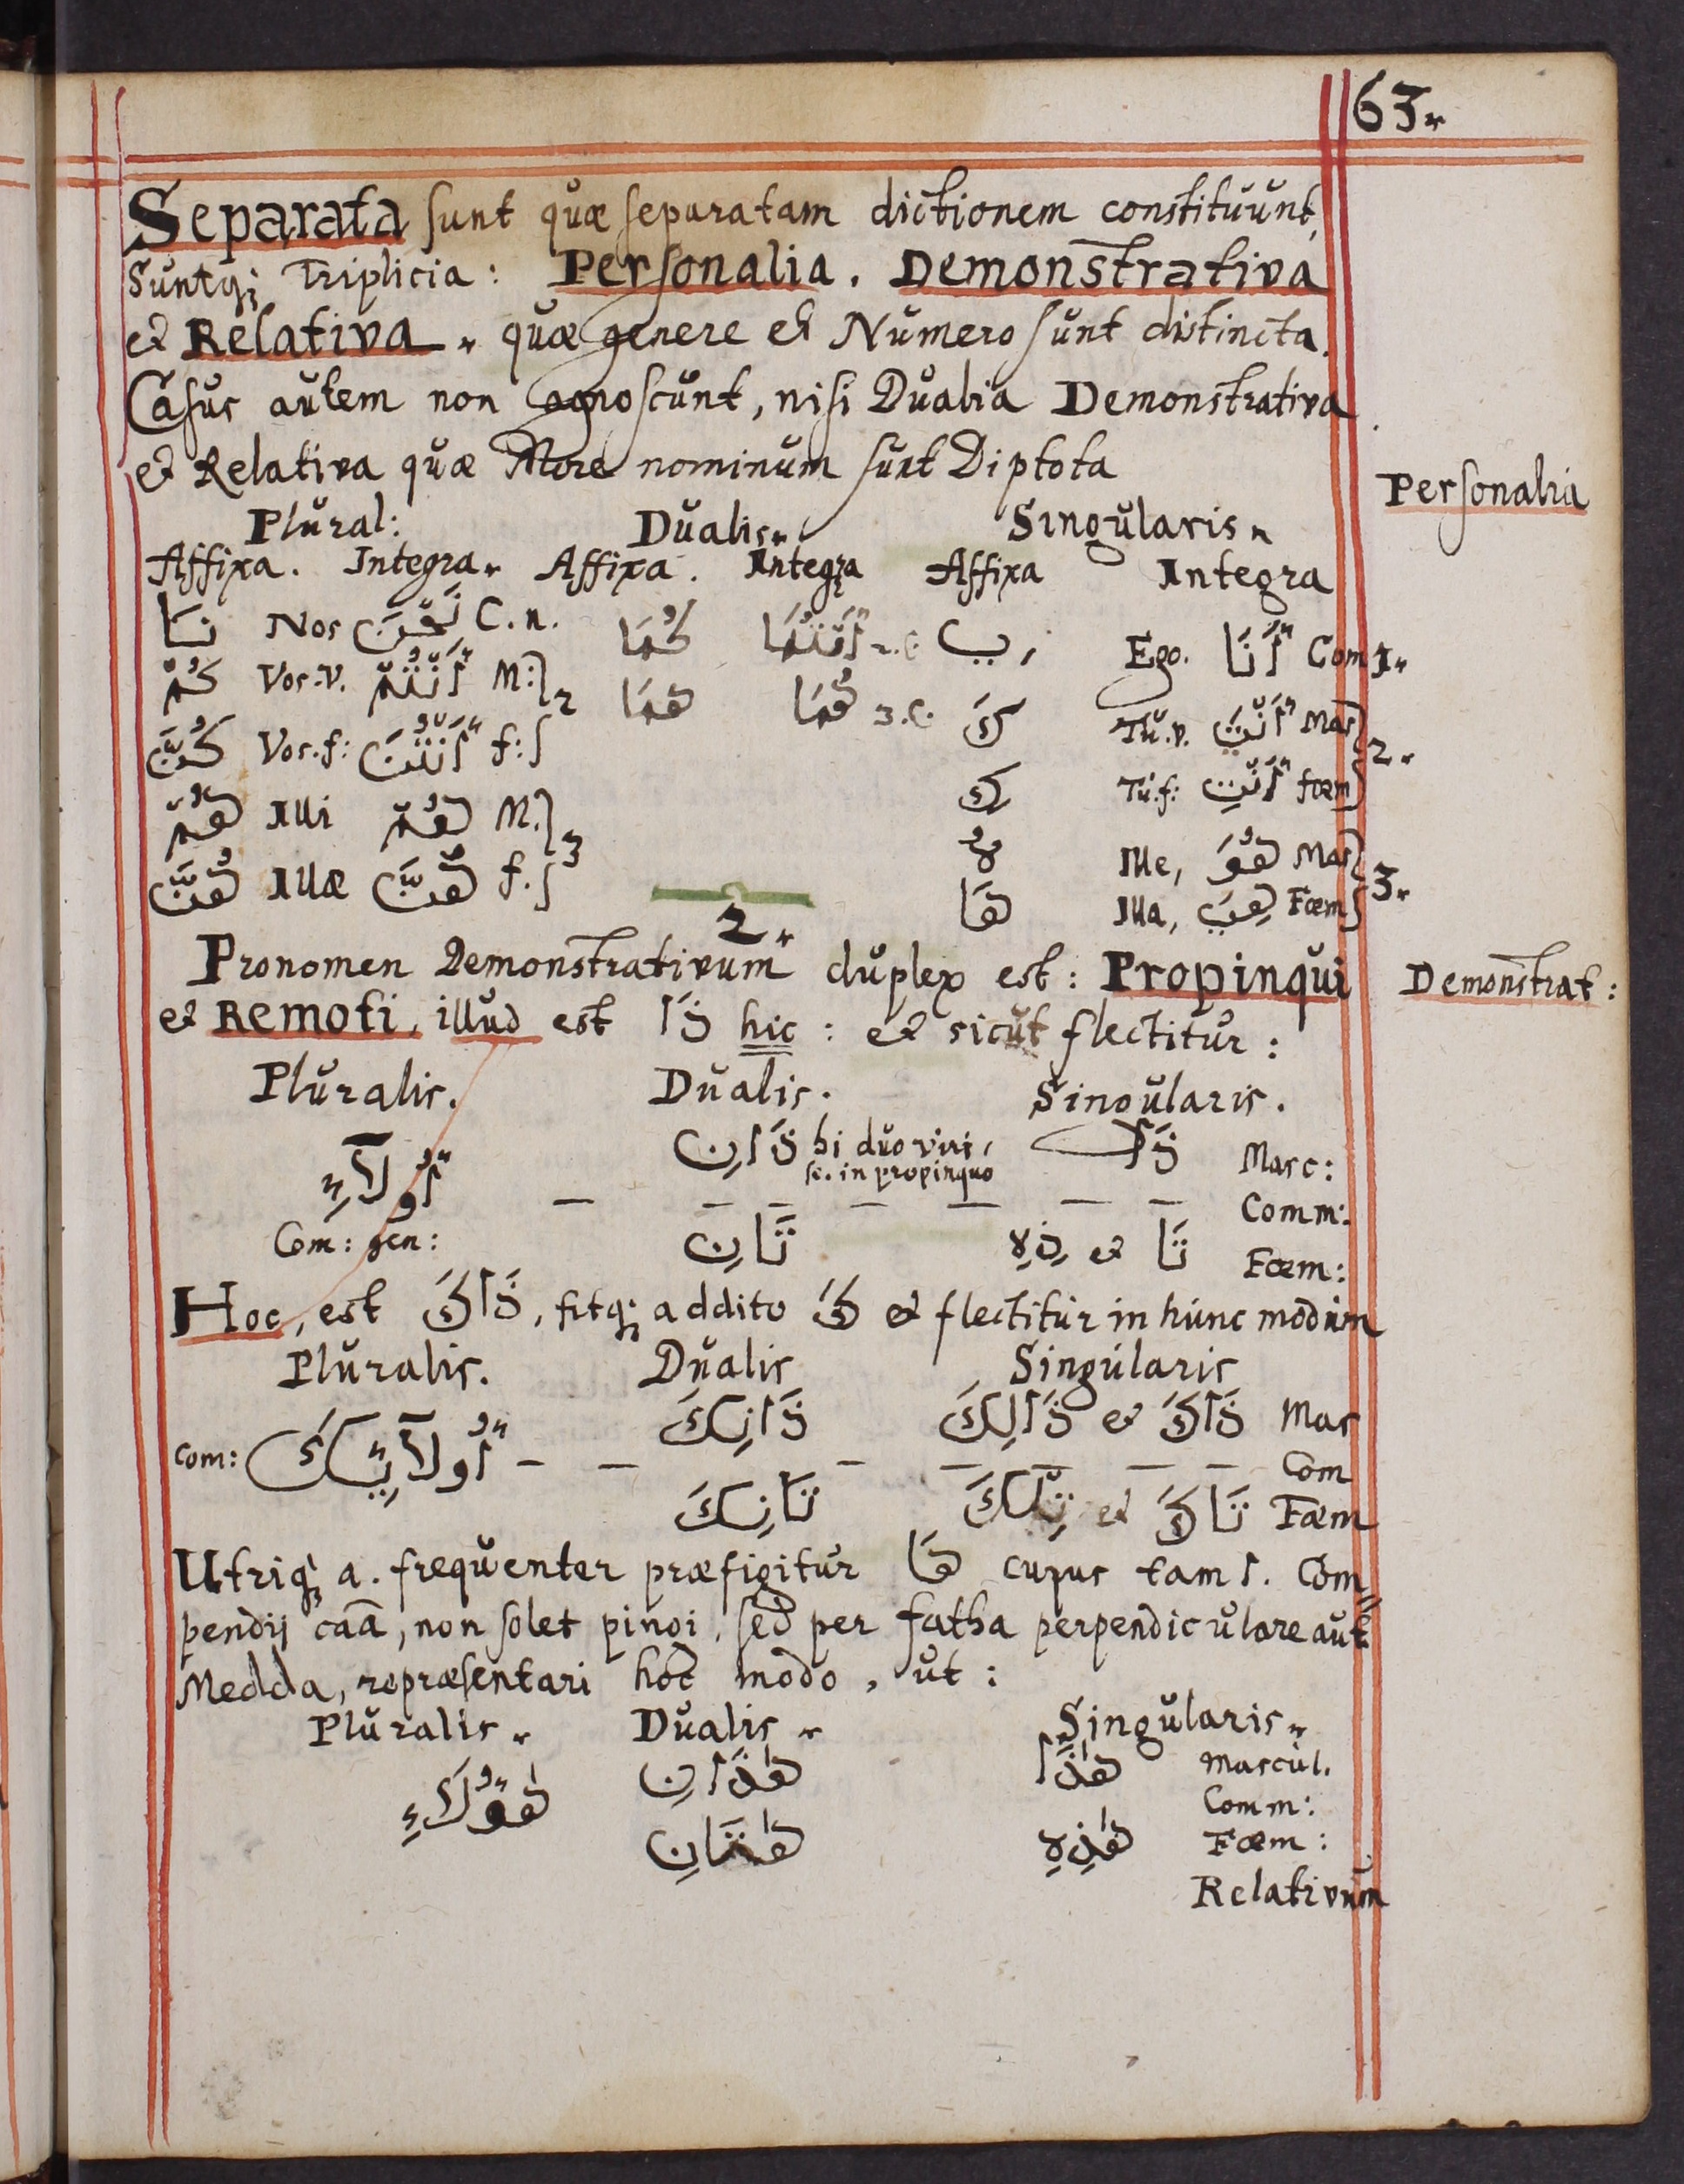 63.
Separata sunt quæ separatam dictionem constituunt,
Suntq; Triplicia: Personalia. Demonstrativa
et Relativa. quæ genere et Numero sunt distincta.
Casus autem non agnoscunt, nisi Dualia Demonstrativa
et Relativa quæ More nominum sunt Diptota
Personalia
Plural: Dualis. Singularis.
Affixa. Integra. Affixa. Integra Affixa Integra
نَا Nos نَحْنَ C.n. كُمَا أَنْتُمَا 2.C. ي Ego. أَنَا Com 1.
كُمْ Vos.v. أَنْتُمْ M: 2 هُمَا هُمَا 3.C. كَ Tu.v. أَنْتَ Mas 2.
كُنَّ Vos.f: أَنْتُنَّ f: كِ Tu.f: أَنْتِ fœm
هُمْ Illi هُمْ M. 3 هُ Ille, هُوَ Mas 3.
هُنَّ Illæ هُنَّ f. هَا Illa, هِيَ Fœm
2.
Pronomen Demonstrativum duplex est: Propinqui
Demonstrat:
et Remoti, illud est ذَا hic: et sicut flectitur:
Pluralis. Dualis. Singularis.
أُولَآءِ ذَانِ hi duo viri, sc. in propinquo ذَا Masc:
Comm:
Com: gen: تَانِ تَا et ذِهِ Fœm:
Hoc, est ذَاكَ, fitq; addito كَ et flectitur in hunc modum
Pluralis. Dualis Singularis
com: أُولَآئِكَ ذَانِكَ ذَاكَ et ذَالِكَ Mas
Com
تَانِكَ تَاكَ et تِلْكَ Fœm
Utriq; a. frequenter præfigitur هَا cujus tam ا. Com
pendij caã, non solet pingi, sed per fatha perpendiculare aut
Medda, repræsentari hoc modo, ut:
Pluralis. Dualis. Singularis.
هٰؤُلَآءِ هٰذَانِ هٰذَا Mascul.
Comm:
هٰتَانِ هٰذِهِ Fœm:
Relativum